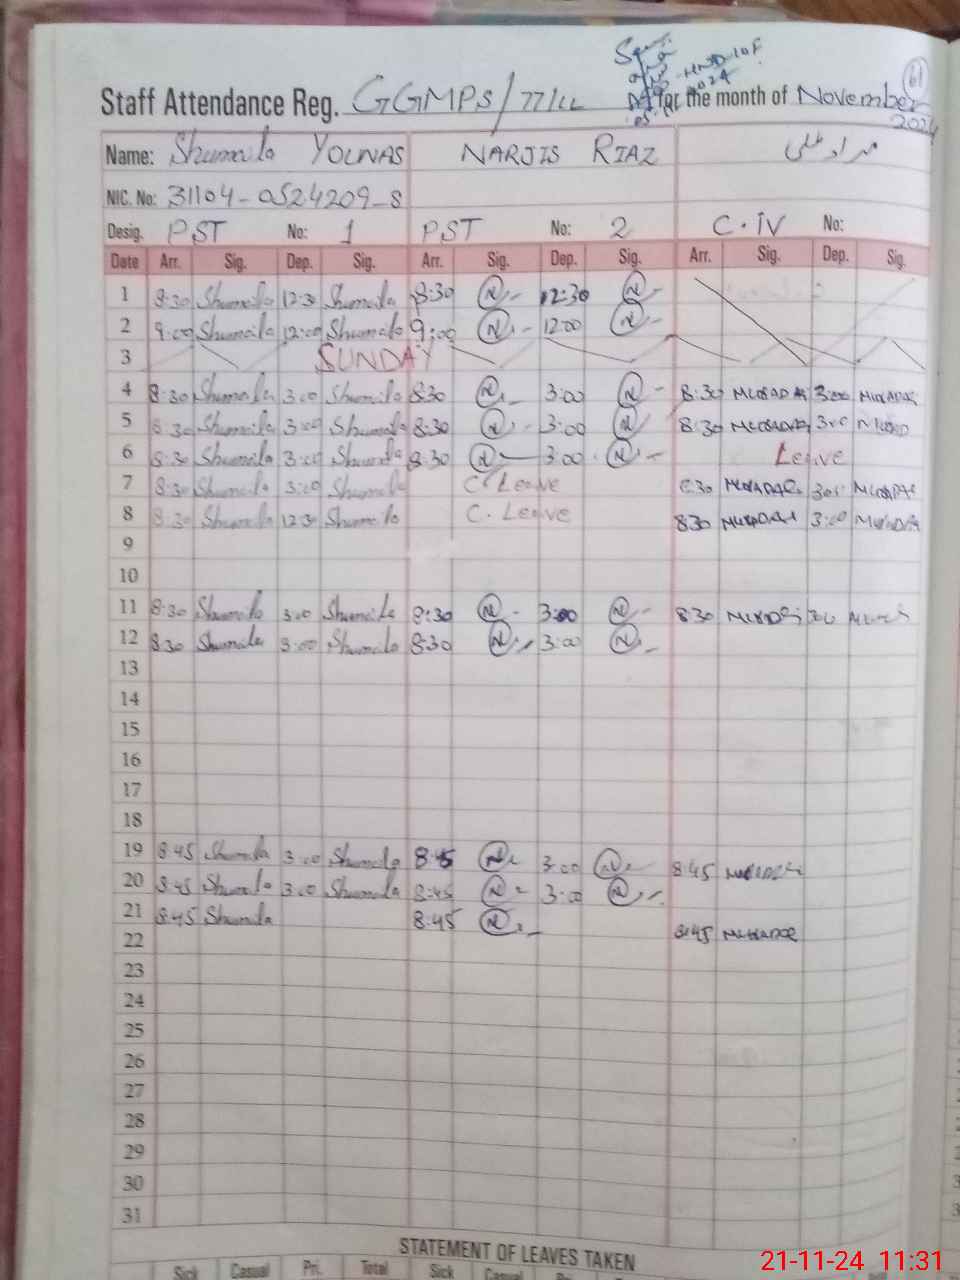 61
Staff Attendance Reg. GGMPS/77/LL for the month of November 2024
Name: Shumaila YOUNAS NARJIS RIAZ مراد علی
NIC. No: 31104-0524209-8
Desig. PST No: 1 PST No: 2 C-IV No:
Date Arr. Sig. Dep. Sig. Arr. Sig. Dep. Sig. Arr. Sig. Dep. Sig.
1 8:30 Shumaila 12:30 Shumaila 8:30 N 12:30 N
2 9:00 Shumaila 12:00 Shumaila 9:00 N 12:00 N
3 SUNDAY
4 8:30 Shumaila 3:00 Shumaila 8:30 N 3:00 N 8:30 3:00
5 8:30 Shumaila 3:00 Shumaila 8:30 N 3:00 N 8:30 3:00
6 8:30 Shumaila 3:00 Shumaila 8:30 N 3:00 N Leave
7 8:30 Shumaila 3:00 Shumaila C. Leave 8:30 3:00
8 8:30 Shumaila 12:30 Shumaila C. Leave 8:30 3:00
9
10
11 8:30 Shumaila 3:00 Shumaila 8:30 N 3:00 N 8:30 3:00
12 8:30 Shumaila 3:00 Shumaila 8:30 N 3:00 N
13
14
15
16
17
18
19 8:45 Shumaila 3:00 Shumaila 8:45 N 3:00 N 8:45
20 8:45 Shumaila 3:00 Shumaila 8:45 N 3:00 N
21 8:45 Shumaila 8:45 N 8:45
22
23
24
25
26
27
28
29
30
31
STATEMENT OF LEAVES TAKEN
Sick Casual Pri. Total Sick Casual
21-11-24 11:31